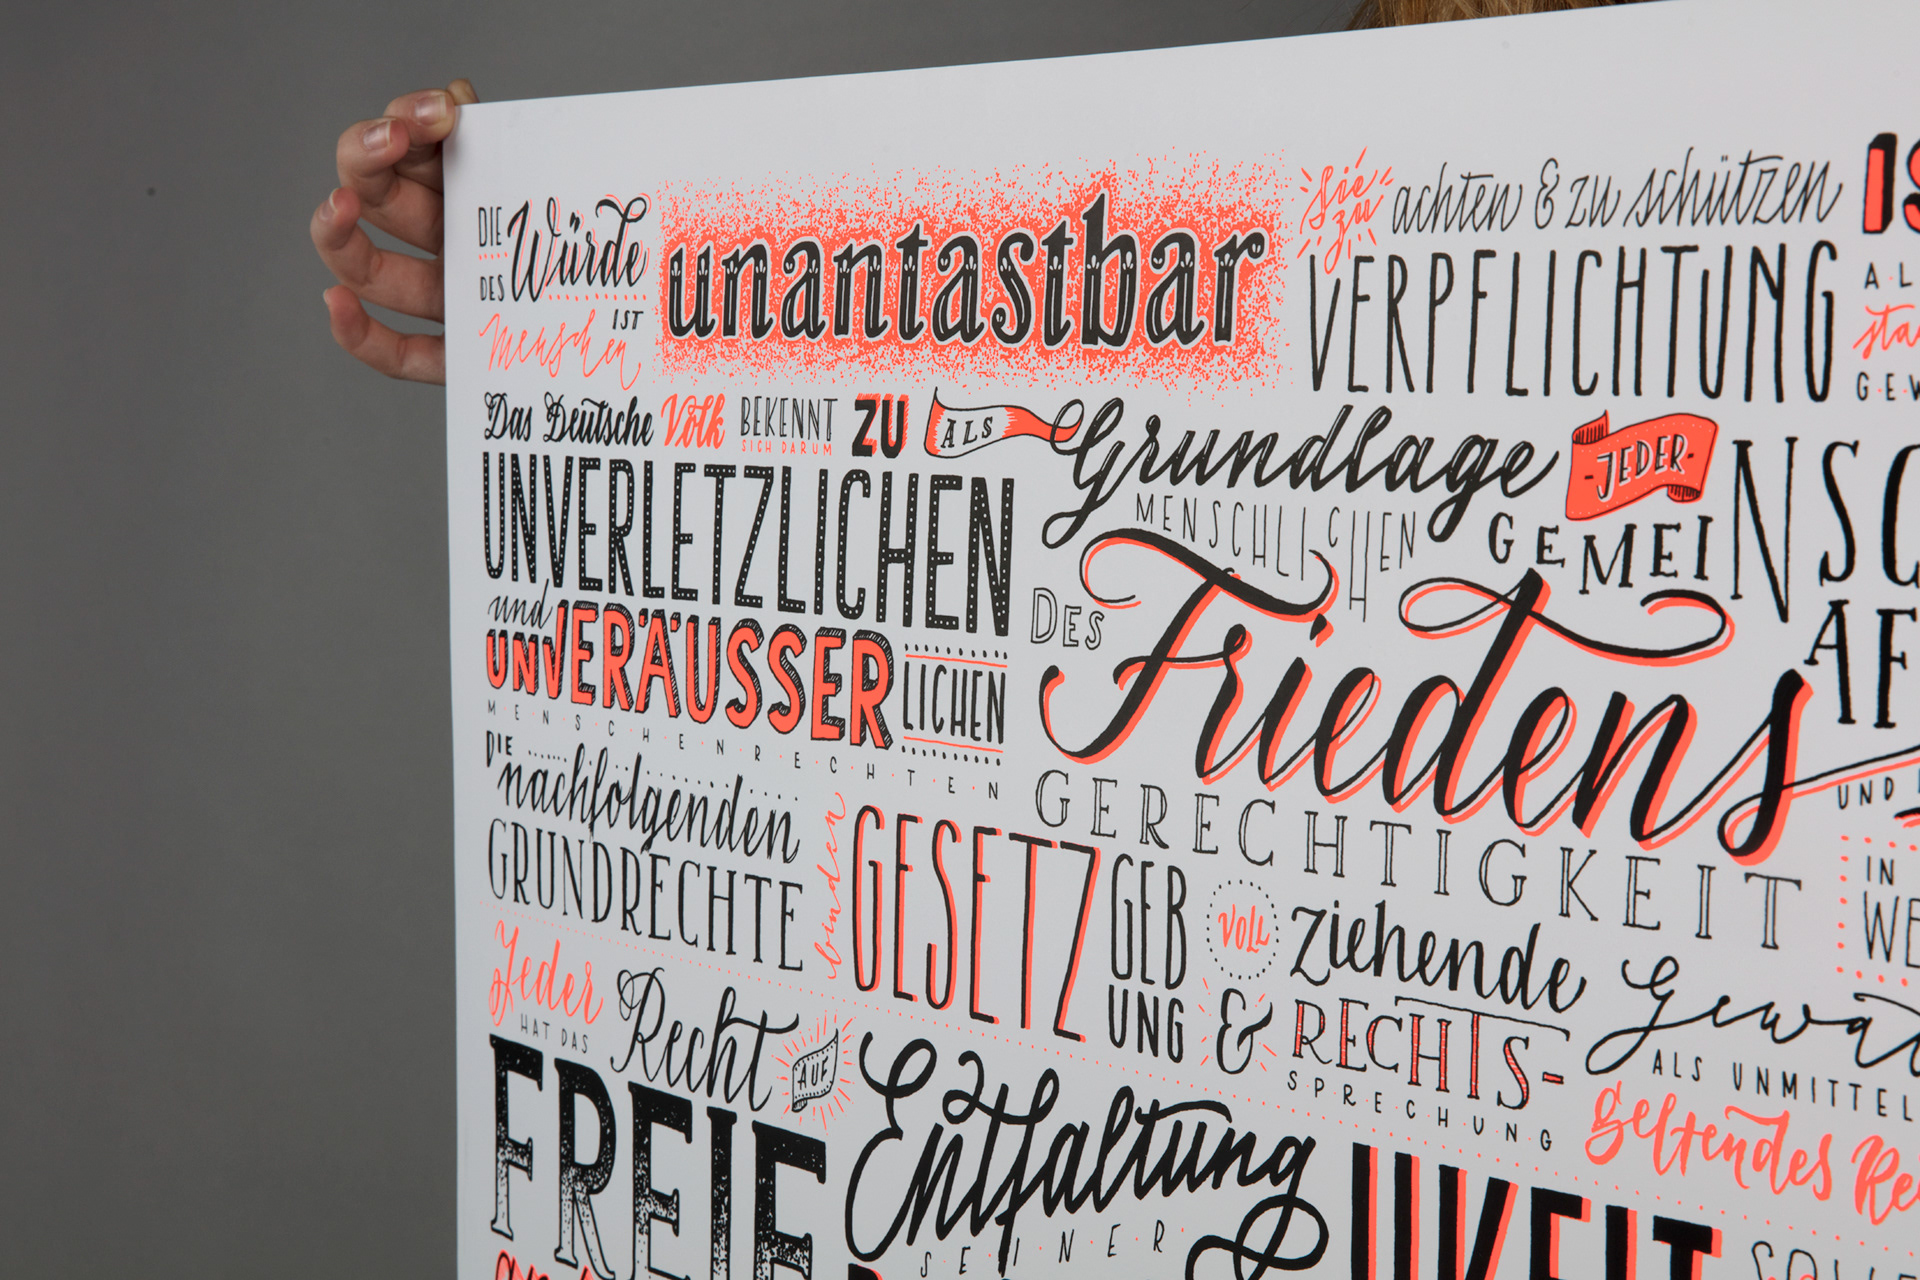 DIE Würde
DES
Menschen IST
unantastbar
Sie zu achten & zu schützen
IS
VERPFLICHTUNG
AL
sta
GEW
Das Deutsche Volk BEKENNT
SICH DARUM
ZU
UNVERLETZLICHEN
und
UNVERÄUSSER
LICHEN
MENSCHENRECHTEN
ALS Grundlage
JEDER
MENSCHLICHEN
GEMEINSC
AF
DES Friedens
UND
GERECHTIGKEIT
IN
WE
DIE
nachfolgenden
GRUNDRECHTE
binden
GESETZ
GEB
UNG
VOLL ziehende Gewa
& RECHTS-
SPRECHUNG
ALS UNMITTEL
Geltendes Re
Jeder
HAT DAS
Recht AUF
FREIE
Entfaltung
SEINER